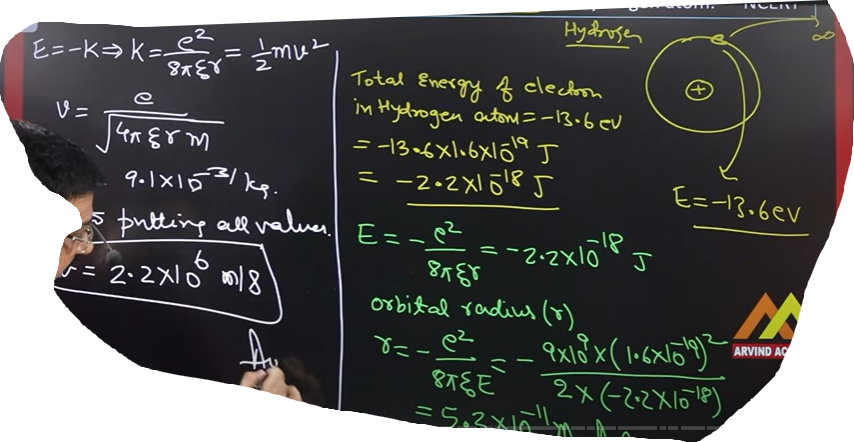 Hydrogen
∞
E=-K⇒K=e²/8πξr=1/2mv²
v=e/√4πξrm
9.1×10⁻³¹kg.
putting all values.
v=2.2×10⁶m/s
Total Energy of electron
in Hydrogen atom=-13.6eV
=-13.6×1.6×10⁻¹⁹J
=-2.2×10⁻¹⁸J
+
E=-13.6eV
E=-e²/8πξr=-2.2×10⁻¹⁸J
orbital radius(r)
r=-e²/8πξE=-9×10⁹×(1.6×10⁻¹⁹)²/2×(-2.2×10⁻¹⁸)
=5.3×10⁻¹¹m
ARVIND